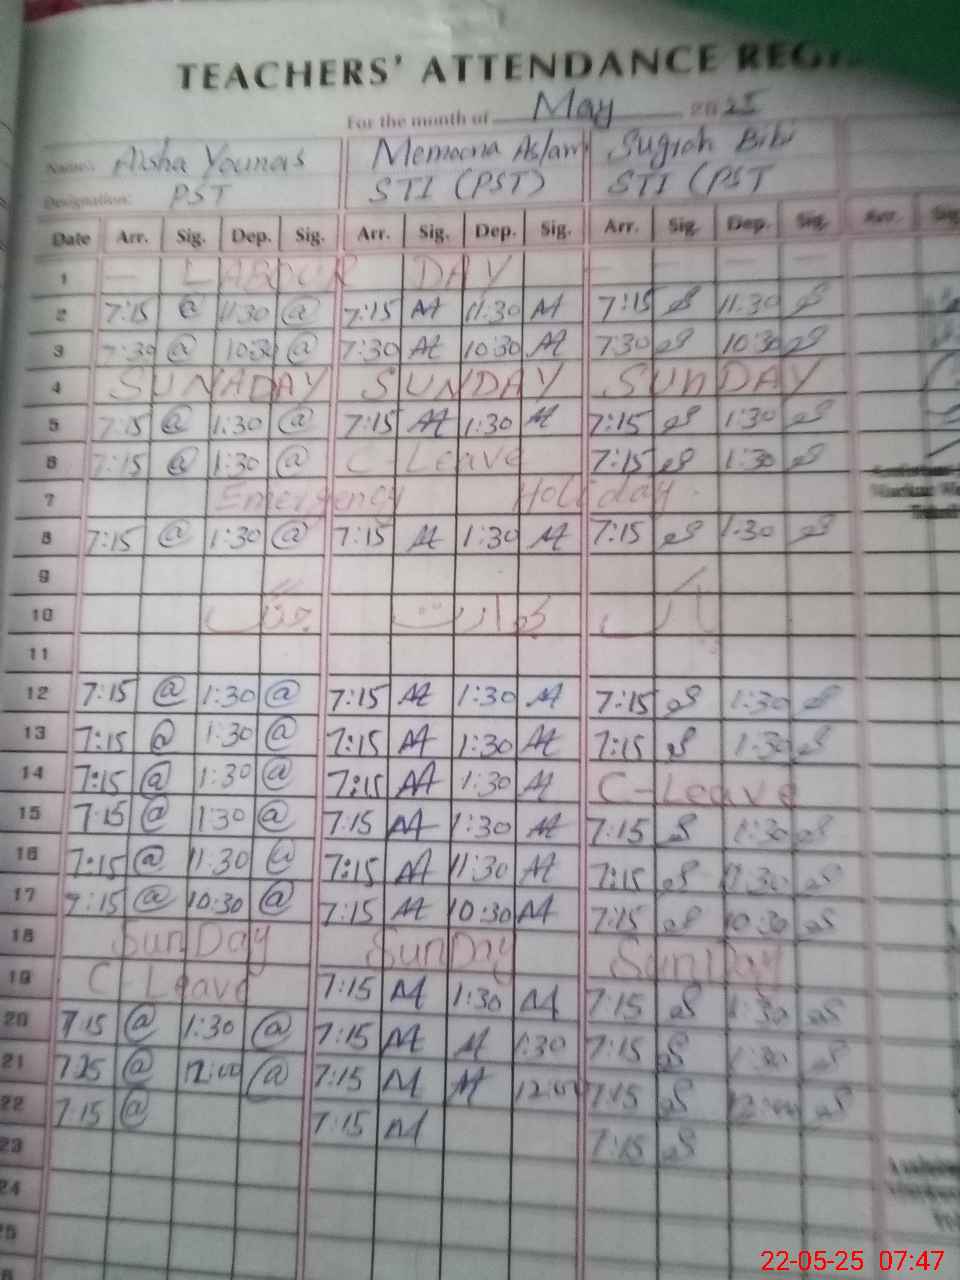 TEACHERS' ATTENDANCE
For the month of May 2025
Name: Aisha Younas Memoona Aslam Sugrah Bibi
Designation: PST STI (PST) STI (PST
Date Arr. Sig. Dep. Sig. Arr. Sig. Dep. Sig. Arr. Sig. Dep. Sig. Arr. Sig.
1 — LABOUR DAY — — — —
2 7:15 @ 11:30 @ 7:15 At 11:30 At 7:15 S 11:30 S
3 7:30 @ 10:30 @ 7:30 At 10:30 At 7:30 S 10:30 S
4 SUNADAY SUNDAY SUNDAY
5 7:15 @ 1:30 @ 7:15 At 1:30 At 7:15 S 1:30 S
6 7:15 @ 1:30 @ C-Leave 7:15 S 1:30 S
7 Emergency Holiday
8 7:15 @ 1:30 @ 7:15 At 1:30 At 7:15 S 1:30 S
9
10 پاک بھارت جنگ
11
12 7:15 @ 1:30 @ 7:15 At 1:30 At 7:15 S 1:30 S
13 7:15 @ 1:30 @ 7:15 At 1:30 At 7:15 S 1:30 S
14 7:15 @ 1:30 @ 7:15 At 1:30 At C-Leave
15 7:15 @ 1:30 @ 7:15 At 1:30 At 7:15 S 1:30 S
16 7:15 @ 11:30 @ 7:15 At 11:30 At 7:15 S 11:30 S
17 7:15 @ 10:30 @ 7:15 At 10:30 At 7:15 S 10:30 S
18 SunDay SunDay Sunday
19 C-Leave 7:15 At 1:30 At 7:15 S 1:30 S
20 7:15 @ 1:30 @ 7:15 At At 1:30 7:15 S 1:30 S
21 7:25 @ 12:00 @ 7:15 At At 12:00 7:15 S 12:00 S
22 7:15 @ 7:15 At 7:15 S
23
24
22-05-25 07:47